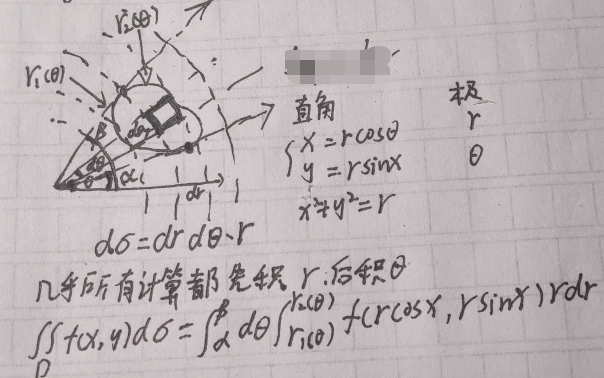 r₂(θ)
r₁(θ)
β
dθ
dθ
θ
α
dr
直角 极
x=rcosθ r
y=rsinx θ
x²+y²=r
dσ=drdθ·r
几乎所有计算都先积r.后积θ
∬f(x,y)dσ=∫αβdθ∫r₁(θ)r₂(θ)f(rcosx,rsinx)rdr
D